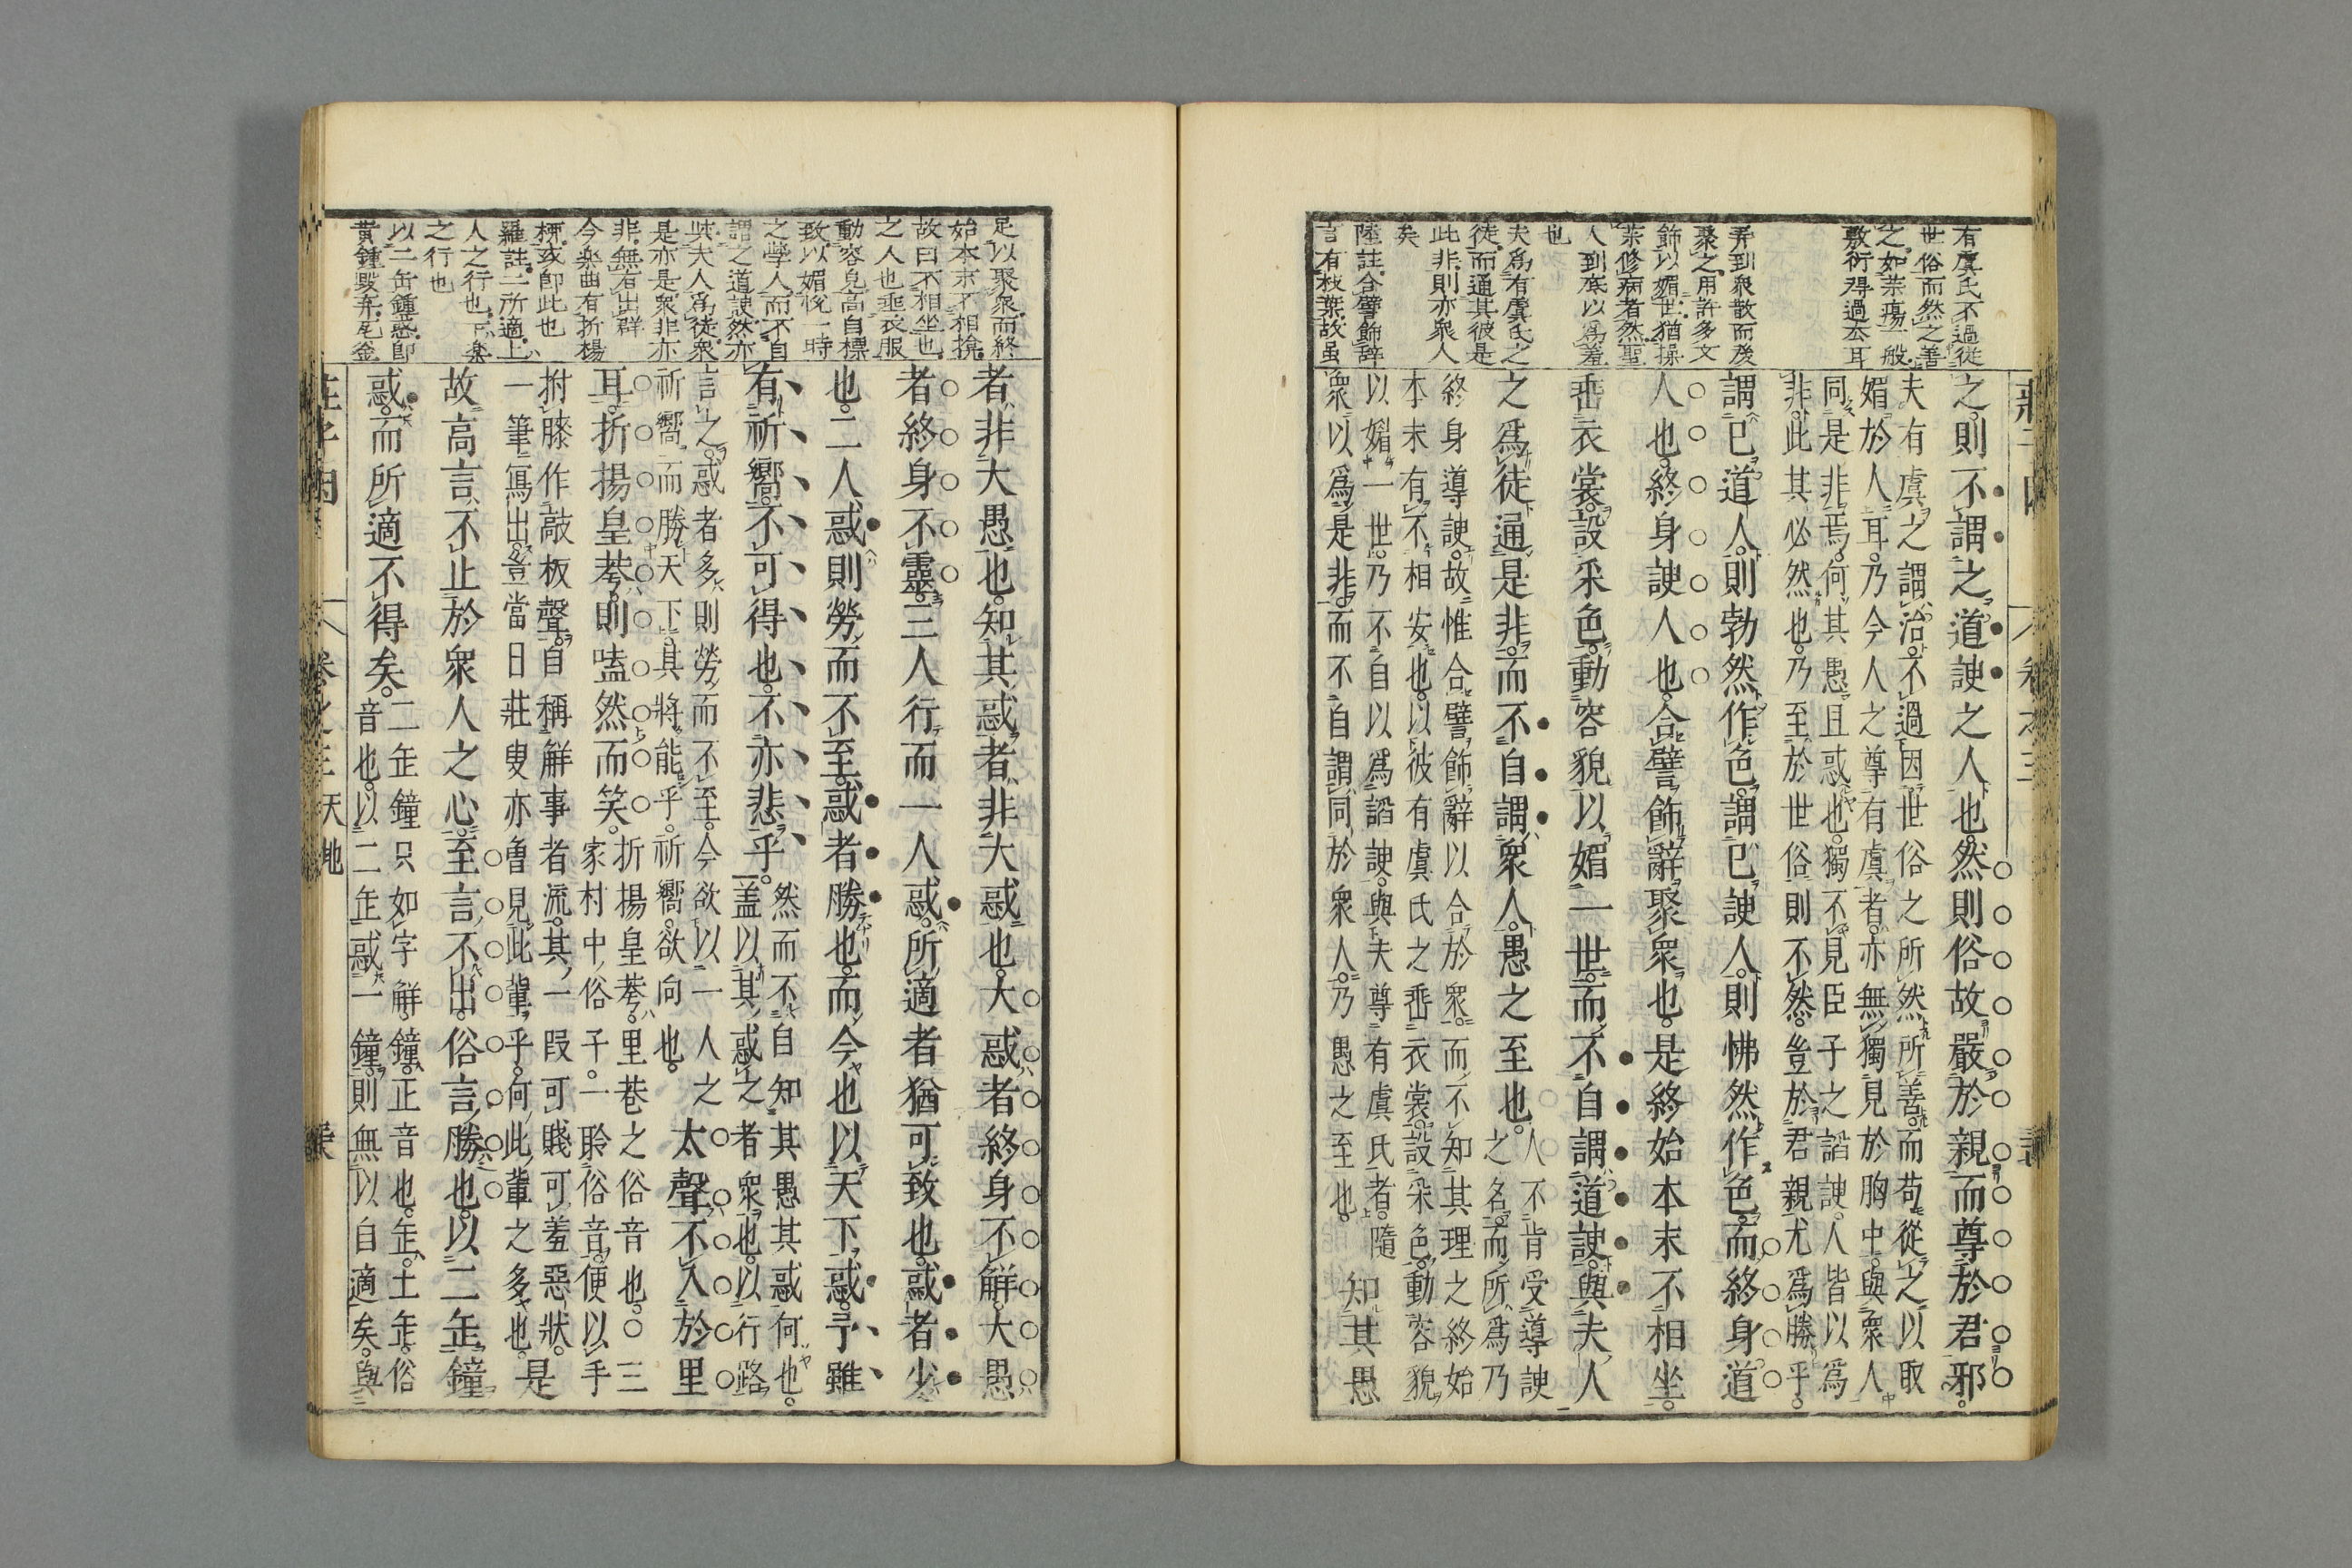 有虞氏不過從
世俗而然之善
之如藥瘍一般
敷衍得過去耳
弄到衆散而後
聚之用許多文
飾以媚世猶操
藥修病者然聖
人到底以爲羞
也
夫爲有虞氏之
徒而通其彼是
此非則亦衆人
矣
陸註合譬飾辭
言有枝葉故虽
之則不謂之道諛之人也然則俗故嚴於親而尊於君邪
夫有虞之謂治不過因世俗之所然所善而苟從之以取
媚於人耳乃今人之尊有虞者亦無獨見於胸中與衆人
同是非焉何其愚且惑也獨不見臣子之謟諛人皆以爲
非此其必然也乃至於世俗則不然豈於君親尤爲勝乎
謂已道人則勃然作色謂已諛人則怫然作色而終身道
人也終身諛人也合譬飾辭聚衆也是終始本末不相坐
垂衣裳設采色動容貌以媚一世而不自謂道諛與夫人
之爲徒通是非而不自謂衆人愚之至也
人不肯受導諛
之名而所爲乃
終身導諛故惟合譬飾辭以合於衆而不知其理之終始
本末有不相安也以彼有虞氏之垂衣裳設采色動容貌
以媚一世乃不自以爲謟諛與夫尊有虞氏者隨
衆以爲是非而不自謂同於衆人乃愚之至也
知其愚
足以聚衆而終
始本末不相搅
故曰不相坐也
之人也垂衣服
動容皃高自標
致以媚悅一時
之學人而不自
謂之道諛然亦
與夫人爲徒衆
是亦是衆非亦
非無有出群
今樂曲有折楊
柳或卽此也
羅註二所適上
人之行也下衆
之行也
以二缶鍾惑卽
黄鍾毀弃瓦釜
者非大愚也知其惑者非大惑也大惑者終身不解大愚
者終身不靈三人行而一人惑所適者猶可致也惑者少
也二人惑則勞而不至惑者勝也而今也以天下惑予雖
有祈嚮不可得也不亦悲乎
然而不自知其愚其惑何也
盖以其惑之者衆也以行路
言之惑者多則勞而不至今欲以一人之
祈嚮而勝天下其將能乎祈嚮欲向也
大聲不入於里
耳折揚皇荂則嗑然而笑
折揚皇荂里巷之俗音也○三
家村中俗子一聆俗音便以手
拊膝作敲板聲自稱解事者流其一叚可賤可羞惡狀
一筆寫出豈當日莊叟亦曾見此輩乎何此輩之多也
是
故高言不止於衆人之心至言不出俗言勝也以二缶鐘
惑而所適不得矣
二缶鐘只如字解鐘正音也缶土缶俗
音也以二缶惑一鐘則無以自適矣與
卷之三 天地